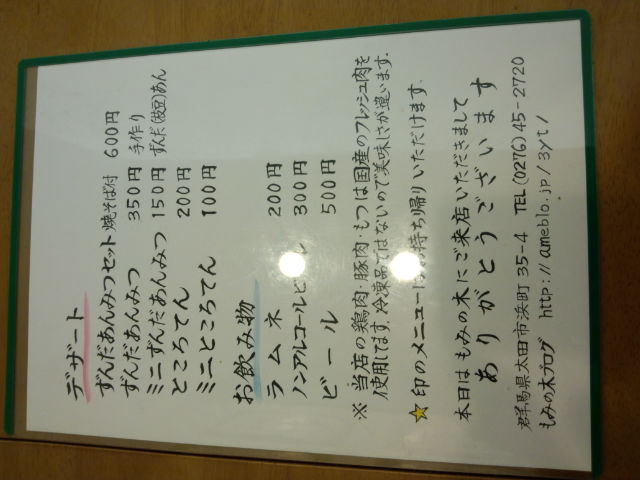 デザート
ずんだあんみつセット 焼そば付 600円
ずんだあんみつ 350円 手作り
ミニずんだあんみつ 150円 ずんだ(枝豆)あん
ところてん 200円
ミニところてん 100円
お飲み物
ラムネ 200円
ノンアルコールビール 300円
ビール 500円
※ 当店の鶏肉・豚肉・もつは国産のフレッシュ肉を
使用してます。冷凍品ではないので美味しさが違います。
☆印のメニューは お持ち帰りいただけます。
本日はもみの木にご来店いただきまして
ありがとうございます
群馬県太田市浜町35-4 TEL(0276)45-2720
もみの木ブログ http://ameblo.jp/3yt/